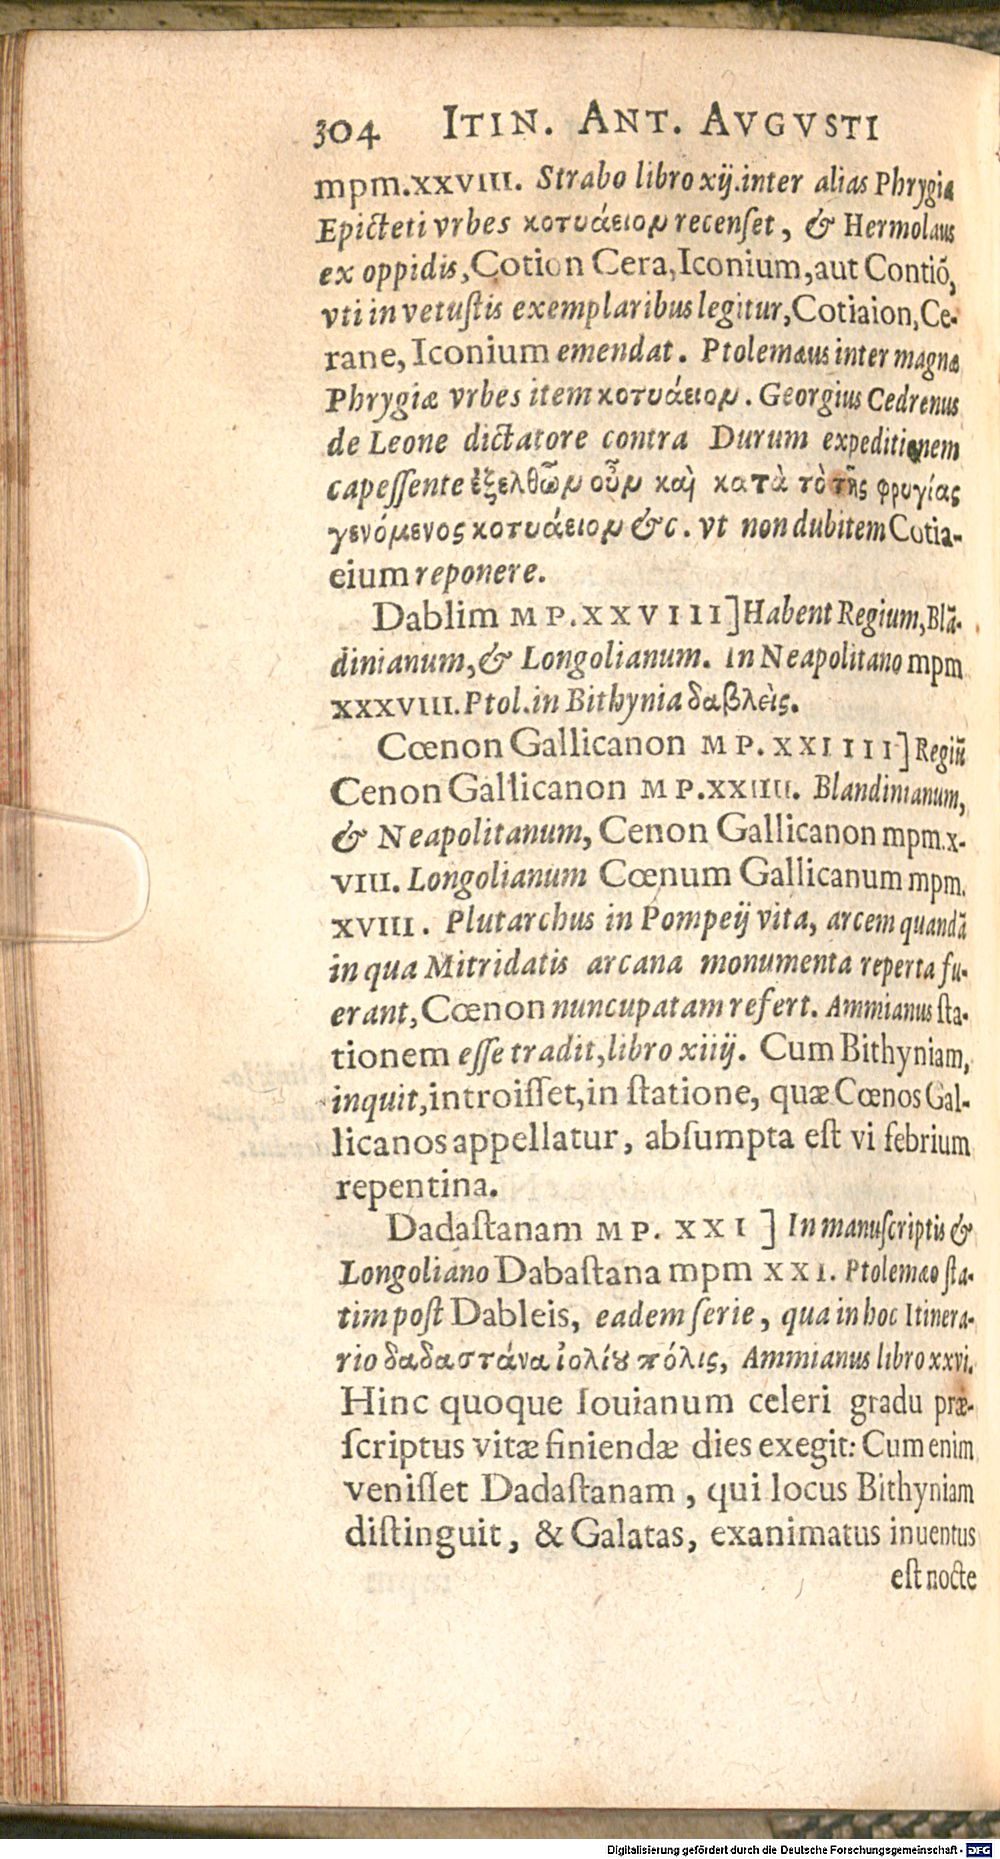 304 ITIN. ANT. AVGVSTI
mpm.xxVIII. Strabo libro xij.inter alias Phrygiæ
Epicteti vrbes κοτυάειομ recenſet, & Hermolaus
ex oppidis, Cotion Cera, Iconium, aut Contiō,
vti in vetuſtis exemplaribus legitur, Cotiaion, Ce-
rane, Iconium emendat. Ptolemæus inter magnæ
Phrygiæ vrbes item κοτυάειομ. Georgius Cedrenus
de Leone dictatore contra Durum expeditionem
capeſſente ἐξελθῶμ οὖμ καὶ κατὰ τὸ τῆς φρυγίας
γενόμενος κοτυάειομ &c. vt non dubitem Cotia-
eium reponere.
Dablim MP.XXVIII] Habent Regium, Blā-
dinianum, & Longolianum. In Neapolitano mpm
XXXVIII. Ptol. in Bithynia δαβλεὶς.
Cœnon Gallicanon MP. XXIIII] Regiū
Cenon Gallicanon MP.XXIIII. Blandinianum,
& Neapolitanum, Cenon Gallicanon mpm.x-
VIII. Longolianum Cœnum Gallicanum mpm.
XVIII. Plutarchus in Pompeij vita, arcem quandā
in qua Mitridatis arcana monumenta reperta fu-
erant, Cœnon nuncupatam refert. Ammianus ſta-
tionem eſſe tradit, libro xiiij. Cum Bithyniam,
inquit, introiſſet, in ſtatione, quæ Cœnos Gal-
licanos appellatur, abſumpta eſt vi febrium
repentina.
Dadaſtanam MP. XXI] In manuſcriptis &
Longoliano Dabaſtana mpm XXI. Ptolemæo ſta-
tim poſt Dableis, eadem ſerie, qua in hoc Itinera-
rio δαδαστάνα ἰολίȣ πόλις, Ammianus libro xxvi.
Hinc quoque Iouianum celeri gradu præ-
ſcriptus vitæ finiendæ dies exegit: Cum enim
veniſſet Dadaſtanam, qui locus Bithyniam
diſtinguit, & Galatas, exanimatus inuentus
eſt nocte
Digitalisierung gefördert durch die Deutsche Forschungsgemeinschaft - DFG